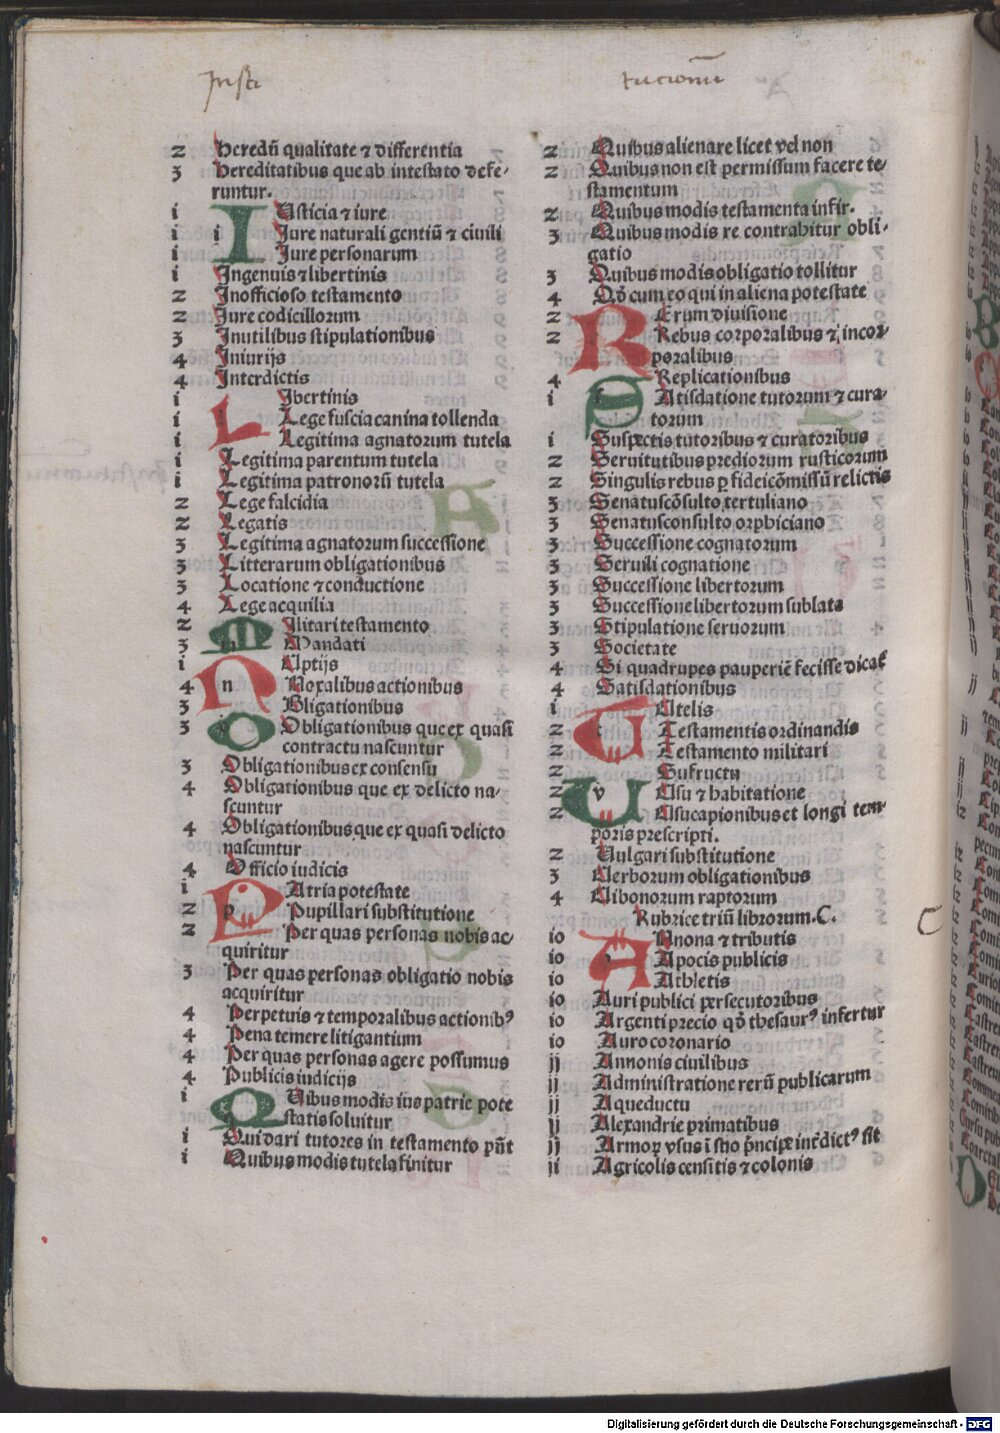 Insti
tucionū
2 Heredū qualitate ⁊ differentia
3 Hereditatibus que ab intestato defe-
runtur.
i Usticia ⁊ iure
i i Jure naturali gentiū ⁊ ciuili
i Jure personarum
i Ingenuis ⁊ libertinis
2 Inofficioso testamento
2 Jure codicillorum
3 Inutilibus stipulationibus
4 Iniurijs
4 Interdictis
i Ibertinis
i L Lege fuscia canina tollenda
i Legitima agnatorum tutela
i Legitima parentum tutela
i Legitima patronorū tutela
2 Lege falcidia
2 Legatis
3 Legitima agnatorum successione
3 Litterarum obligationibus
3 Locatione ⁊ conductione
4 Lege acquilia
2 M Ilitari testamento
3 Mandati
i Uptijs
4 N n Noxalibus actionibus
3 Bligationibus
3 O Obligationibus que ex quasi
contractu nascuntur
3 Obligationibus ex consensu
4 Obligationibus que ex delicto na-
scuntur
4 Obligationibus que ex quasi delicto
nascuntur
4 Officio iudicis
i P Atria potestate
2 p Pupillari substitutione
2 Per quas personas nobis ac-
quiritur
3 Per quas personas obligatio nobis
acquiritur
4 Perpetuis ⁊ temporalibus actionibꝰ
4 Pena temere litigantium
4 Per quas personas agere possumus
4 Publicis iudicijs
i Q Uibus modis ius patrie pote
statis soluitur
i Qui dari tutores in testamento pn̄t
i Quibus modis tutela finitur
2 Quibus alienare licet vel non
2 Quibus non est permissum facere te-
stamentum
2 Quibus modis testamenta infir.
3 Quibus modis re contrahitur obli-
gatio
3 Quibus modis obligatio tollitur
4 Qd̄ cum eo qui in aliena potestate
2 R Erum diuisione
2 Rebus corporalibus ⁊ incor-
poralibus
4 Replicationibus
i S Atisdatione tutorum ⁊ cura-
torum
i Suspectis tutoribus ⁊ curatoribus
2 Seruitutibus prediorum rusticorum
2 Singulis rebus ꝑ fideicōmissū relictis
3 Senatuscōsulto tertuliano
3 Senatusconsulto orphiciano
3 Successione cognatorum
3 Seruili cognatione
3 Successione libertorum
3 Successione libertorum sublata
3 Stipulatione seruorum
3 Societate
4 Si quadrupes pauperiē fecisse dicat
4 Satisdationibus
i T Utelis
2 t Testamentis ordinandis
2 Testamento militari
2 Sufructu
2 U v Usu ⁊ habitatione
2 Usucapionibus et longi tem-
poris prescripti.
2 Vulgari substitutione
3 Verborum obligationibus
4 Vibonorum raptorum
Rubrice triū librorum .C.
C
io A Nnona ⁊ tributis
io Apocis publicis
io Athletis
io Auri publici persecutoribus
io Argenti precio qd̄ thesaurꝰ infertur
io Auro coronario
ij Annonis ciuilibus
ij Administratione rerū publicarum
ij Aqueductu
ij Alexandrie primatibus
ij Armoꝝ vsus ī scho p̄ncipe int̄dictꝰ sit
ij Agricolis censitis ⁊ colonis
Digitalisierung gefördert durch die Deutsche Forschungsgemeinschaft - DFG